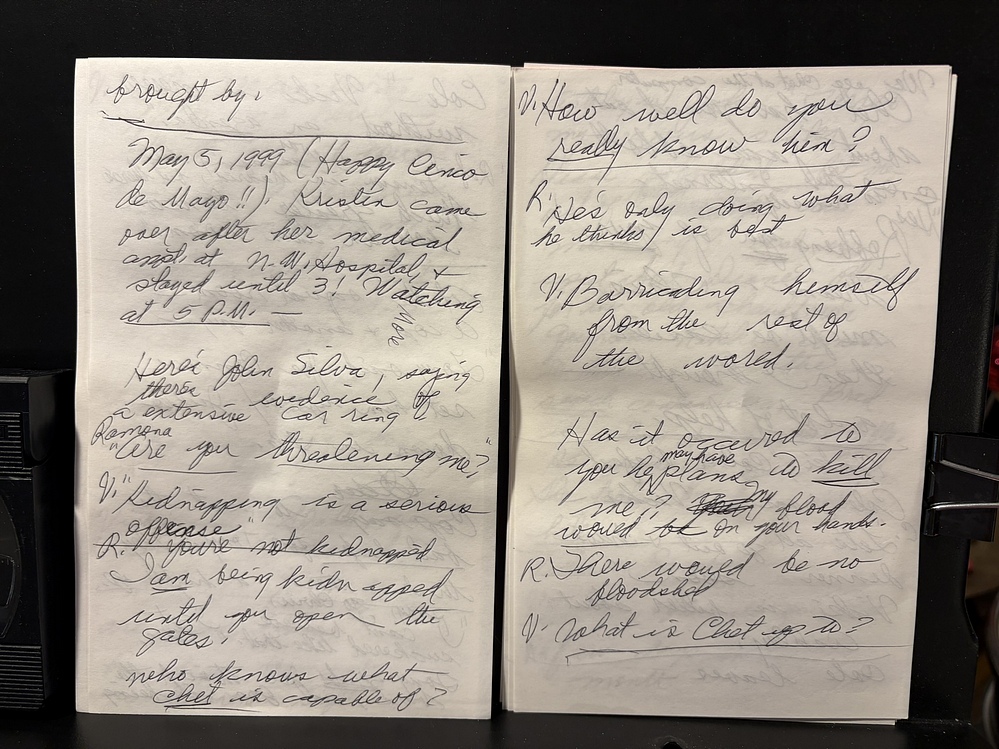 brought by:
May 5, 1999 (Happy Cinco
de Mayo!!). Kristin came
over after her medical
ampt. at N.W. Hospital, &
stayed until 3! Watching
Nore
at 5 P.M. —
Here's John Silva, saying
there's evidence of
a extensive car ring!
Ramona
"Are you threatening me?"
V: "Kidnapping is a serious
offense"
R. You're not kidnapped
I am being kidnapped
until you open the
gates!
Who knows what
Chet is capable of?
V: How well do you
really know him?
R. He's only doing what
he thinks is best
V. Barricading himself
from the rest of
the world.
Has it occured to
you he may have plans to kill
me? my blood
would be on your hands.
R. There would be no
bloodshed
V- What is Chet up to?